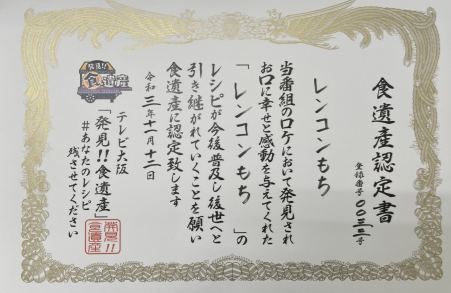 食遺産認定書
登録番号 〇〇三三号
レンコンもち
当番組のロケにおいて発見され
お口に幸せと感動を与えてくれた
「レンコンもち」の
レシピが今後普及し後世へと
引き継がれていくことを願い
食遺産に認定致します
令和三年十一月十二日
発見!!
食遺産
テレビ大阪
「発見!!食遺産」
#あなたのレシピ
残させてください
発見!!
食遺産